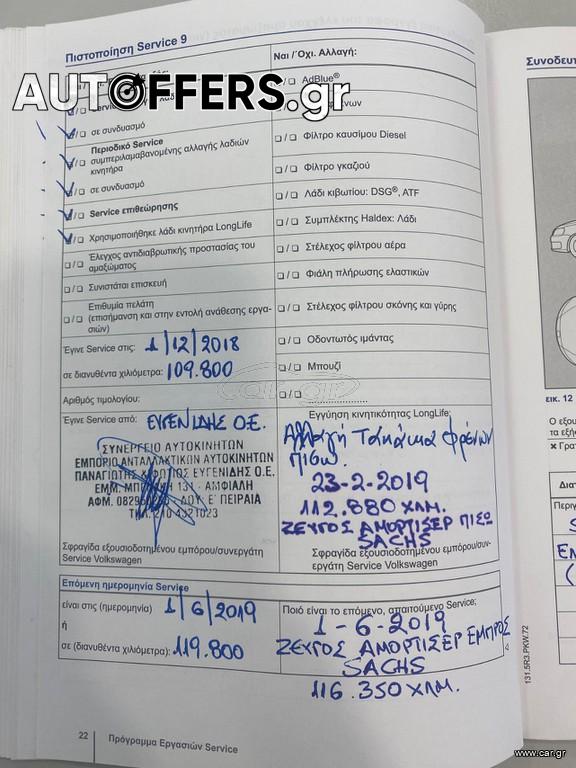 Πιστοποίηση Service 9
Ναι / Όχι. Αλλαγή:
AUTOFFERS.gr
❏ / ❏ AdBlue®
❏ / ❏ σε συνδυασμό
Περιοδικό Service
❏ / ❏ συμπεριλαμαβανομένης αλλαγής λαδιών
κινητήρα
❏ / ❏ σε συνδυασμό
❏ / ❏ Service επιθεώρησης
❏ / ❏ Χρησιμοποιήθηκε λάδι κινητήρα LongLife
❏ / ❏ Έλεγχος αντιδιαβρωτικής προστασίας του
αμαξώματος
❏ / ❏ Συνιστάται επισκευή
Επιθυμία πελάτη
❏ / ❏ (επισήμανση και στην εντολή ανάθεσης εργα-
σιών)
❏ / ❏ Φίλτρο καυσίμου Diesel
❏ / ❏ Φίλτρο γκαζιού
❏ / ❏ Λάδι κιβωτίου: DSG®, ATF
❏ / ❏ Συμπλέκτης Haldex: Λάδι
❏ / ❏ Στέλεχος φίλτρου αέρα
❏ / ❏ Φιάλη πλήρωσης ελαστικών
❏ / ❏ Στέλεχος φίλτρου σκόνης και γύρης
❏ / ❏ Οδοντωτός ιμάντας
❏ / ❏ Μπουζί
❏ / ❏
Έγινε Service στις: 1/12/2018
σε διανυθέντα χιλιόμετρα: 109.800
Αριθμός τιμολογίου:
car.gr
Έγινε Service από: ΕΥΓΕΝΙΔΗΣ Ο.Ε.
ΣΥΝΕΡΓΕΙΟ ΑΥΤΟΚΙΝΗΤΩΝ
ΕΜΠΟΡΙΟ ΑΝΤΑΛΛΑΚΤΙΚΩΝ ΑΥΤΟΚΙΝΗΤΩΝ
ΠΑΝΑΓΙΩΤΗΣ ΕΥΓΕΝΙΔΗΣ Ο.Ε.
ΕΜΜ. 131 - ΑΜΦΙΑΛΗ
ΑΦΜ. ΔΟΥ: Ε' ΠΕΙΡΑΙΑ
ΤΗΛ. 210 4321023
Σφραγίδα εξουσιοδοτημένου εμπόρου/συνεργάτη
Service Volkswagen
Εγγύηση κινητικότητας LongLife:
Αλλαγή Τακάκια φρένων
πίσω.
23-2-2019
112.880 ΧΛΜ.
ΖΕΥΓΟΣ ΑΜΟΡΤΙΣΕΡ ΠΙΣΩ
SACHS
Σφραγίδα εξουσιοδοτημένου εμπόρου/συν-
εργάτη Service Volkswagen
Επόμενη ημερομηνία Service
είναι στις (ημερομηνία) 1/6/2019
ή
σε (διανυθέντα χιλιόμετρα): 119.800
Ποιό είναι το επόμενο, απαιτούμενο Service:
1-6-2019
ΖΕΥΓΟΣ ΑΜΟΡΤΙΣΕΡ ΕΜΠΡΟΣ
SACHS
116.350 ΧΛΜ.
22
Πρόγραμμα Εργασιών Service
Συνοδευτ
εικ. 12
Ο εξου
τα εξής
Διατ
Περιγ
131.5R3.PKW.72
www.car.gr